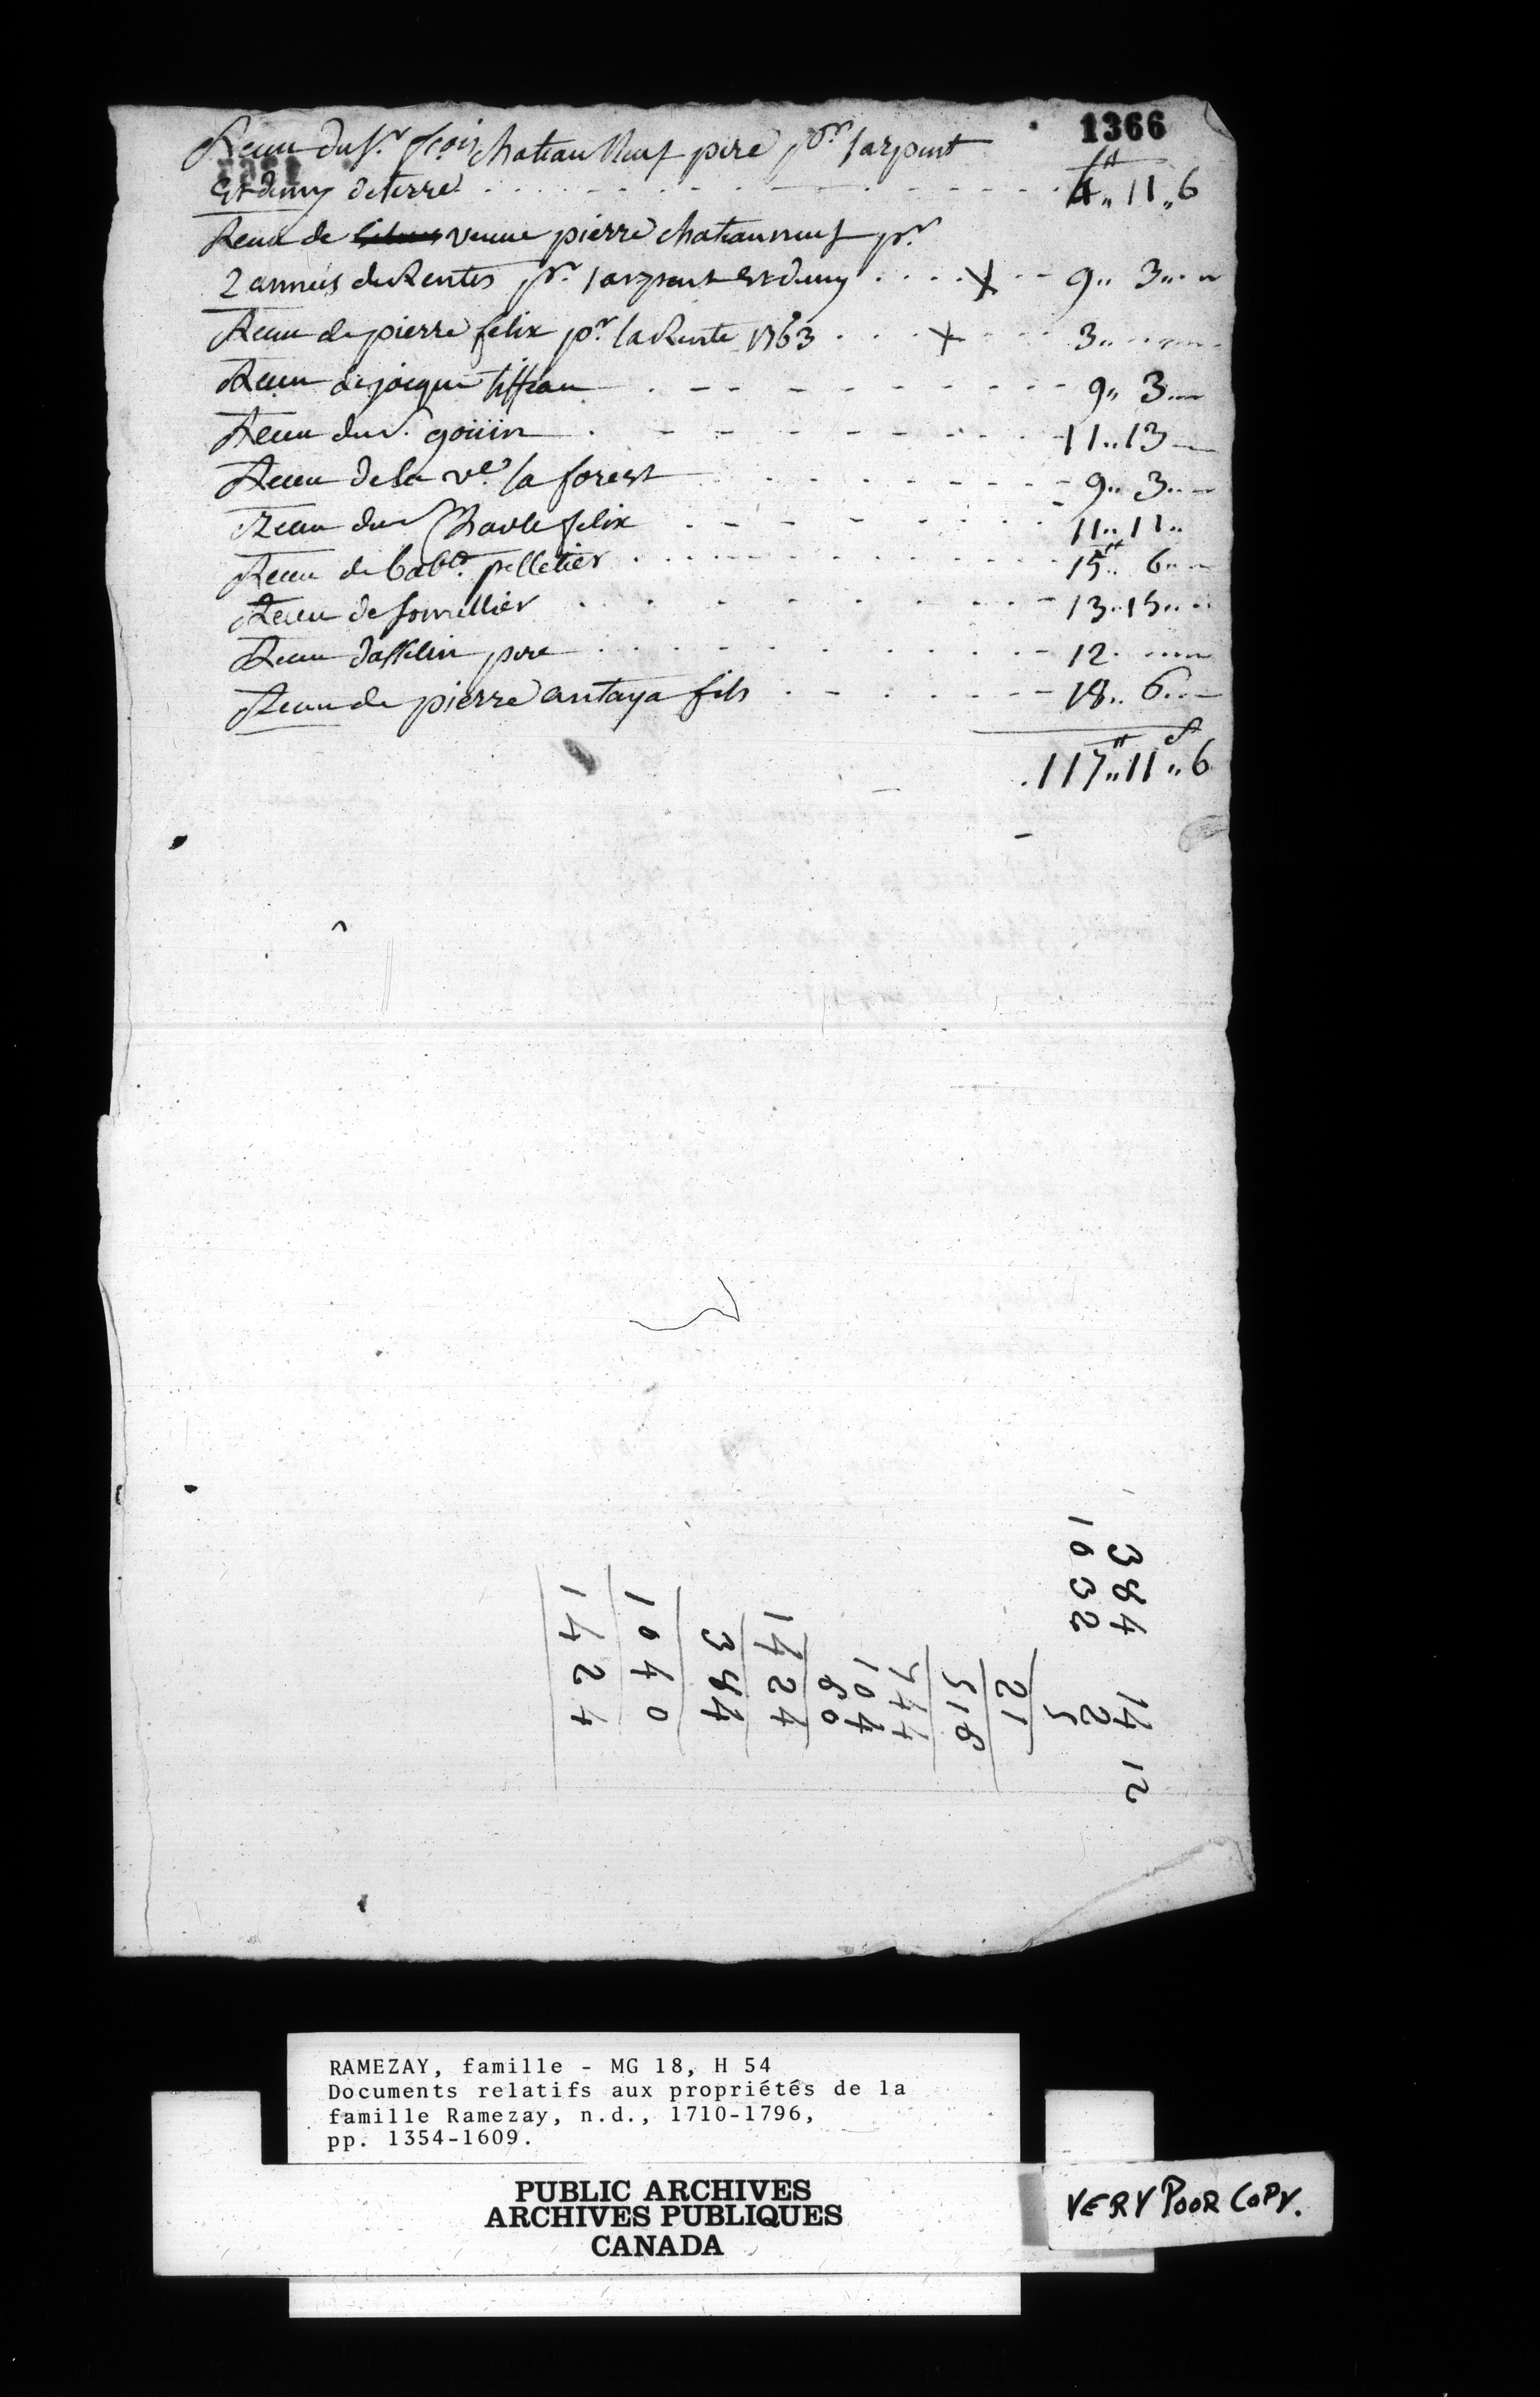 1366
Receu du Sr. fçois chateau Neuf pere pr. 1 arpent
Et demy de terre . . . . . . . . . 4 ₶ „ 11 „ 6
Receu de veuve pierre chateauneuf pr.
2 annees de Rentes pr. 1 arpent Et demy . . . . X . - 9 „ 3 „
Receu de pierre felix pr. la Rente 1763 . . . X - - - 3 „
Receu de jacque tiffeau . - - - - - - - - 9 „ 3
Receu du Sr. goüin . - - - - - - - - 11 „ 13
Receu de la ve. la forest - - - - - - 9 „ 3
Receu du Charle felix - - - - - - 11 „ 11 „
Receu de babte. pelletier . . . . . . . . 15 ₶ „ 6
Receu de . . . . . . . . . 13 „ 15
Receu dasselin pere . . . . . . . . 12
Receu de pierre antaya fils . - . - - - 18 „ 6
117 ₶ „ 11 s „ 6
384 14 12
1032 2
5
21
516
744
104
60
1424
384
1040
1424
RAMEZAY, famille - MG 18, H 54
Documents relatifs aux propriétés de la
famille Ramezay, n.d., 1710-1796,
pp. 1354-1609.
PUBLIC ARCHIVES
ARCHIVES PUBLIQUES
CANADA
VERY POOR COPY.